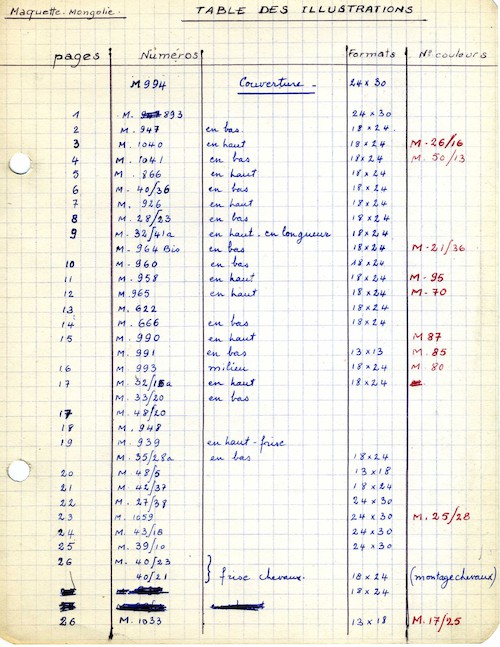 Maquette. Mongolie. TABLE DES ILLUSTRATIONS
pages Numéros Formats Nos couleurs
M 994 Couverture - 24 x 30
1 M. 893 24 x 30
2 M. 947 en bas. 18 x 24.
3 M. 1040 en haut 18 x 24 M - 26/16
4 M. 1041 en bas 18 x 24 M. 50/13
5 M. 866 en haut 18 x 24
6 M. 40/36 en bas 18 x 24
7 M. 926 en haut 18 x 24
8 M. 28/23 en bas 18 x 24
9 M. 32/41a en haut - en longueur 18 x 24
M - 964 Bis en bas 18 x 24 M - 21/36
10 M. 960 en bas 18 x 24
11 M. 958 en haut 18 x 24 M - 95
12 M. 965 en haut 18 x 24 M - 70
13 M. 622 18 x 24
14 M. 666 en bas 18 x 24
15 M. 990 en haut M 87
M. 991 en bas 13 x 13 M. 85
16 M. 993 milieu 18 x 24 M. 80
17 M. 32/15a en haut 18 x 24
M. 33/20 en bas
17 M. 48/20
18 M. 948
19 M. 939 en haut - frise
M. 35/28a en bas 18 x 24
20 M 48/5 13 x 18
21 M. 42/37 18 x 24
22 M. 27/38 24 x 30
23 M. 1059 24 x 30 M. 25/28
24 M. 43/18 24 x 30
25 M. 39/10 24 x 30
26 M. 40/23
40/21 } frise chevaux. 18 x 24 (montage chevaux)
18 x 24
26 M. 1033 13 x 18 M. 17/25